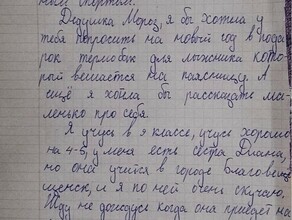 ным спортом.
Дедушка Мороз, я бы хотела у
тебя попросить на новый год в пода
рок термобак для лыжника кото-
рый вешается на поясницу. А
ещё я хотела бы рассказать ма-
ленько про себя.
Я учусь в 9 классе, учусь хорошо
на 4-5, у меня есть сестра Диана,
но она учится в городе Благовещ
щенск, и я по ней очень скучаю.
Жду не дождусь когда она приедет на